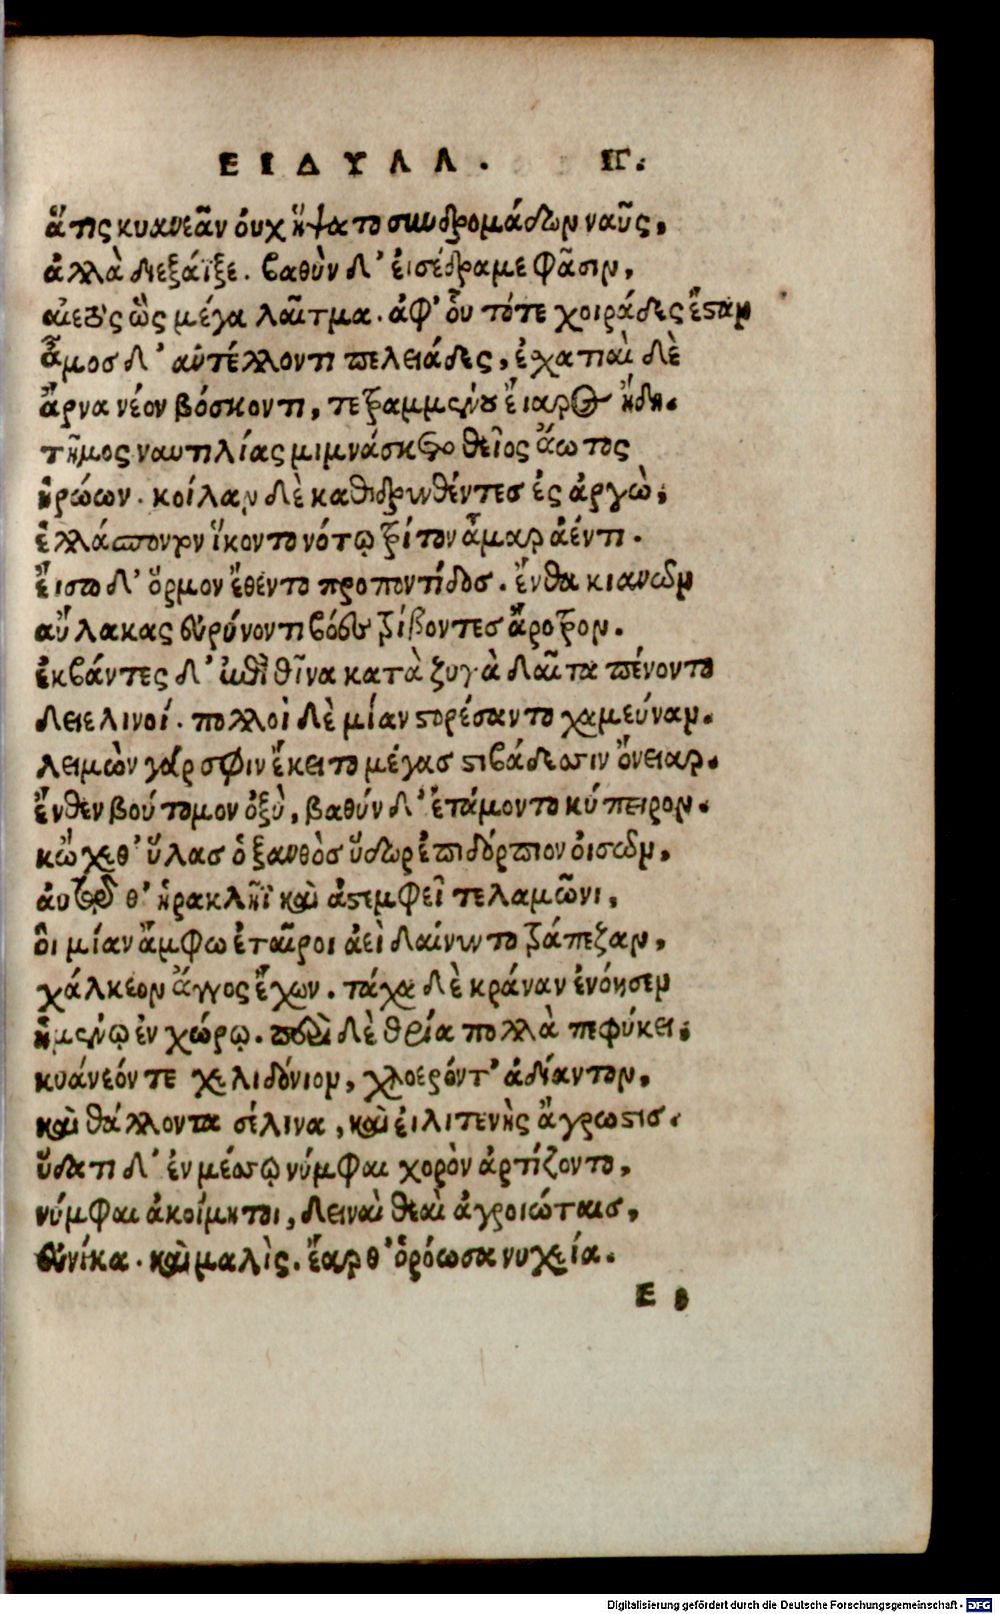 ΕΙΔΥΛΛ. ΙΓ.
ἅτις κυανεᾶν ὀυχ ἥψατο συνδρομάδων ναῦς,
ἀλλὰ διεξάϊξε. βαθὺν δ' ἐισέδραμε φᾶσιν,
αἰετὸς ὣς μέγα λαῖτμα. ἀφ' οὗ τότε χοιράδες ἔσταν
ἆμος δ' ἀντέλλοντι πελειάδες, ἐχατιαὶ δὲ
ἄρνα νέον βόσκοντι, τετραμμένου ἔιαρος ἤδη.
τῆμος ναυτιλίας μιμνάσκετο θεῖος ἄωτος
ἡρώων. κοίλαν δὲ καθιδρυνθέντες ἐς ἀργὼ,
ἑλλάσποντον ἵκοντο νότῳ τρίτον ἆμαρ ἀέντι.
ἔισω δ' ὅρμον ἔθεντο προποντίδος. ἔνθα κιανῶν
αὔλακας εὐρύνοντι βόες τρίβοντες ἄροτρον.
ἐκβάντες δ' ἐπὶ θῖνα κατὰ ζυγὰ δαῖτα πένοντο
δειελινοί. πολλοὶ δὲ μίαν στορέσαντο χαμεύναν.
λειμὼν γάρ σφιν ἔκειτο μέγας στιβάδεσσιν ὄνειαρ.
ἔνθεν βούτομον ὀξὺ, βαθύν δ' ἐτάμοντο κύπειρον.
κᾤχεθ' ὕλας ὁ ξανθὸς ὕδωρ ἐπιδόρπιον ὀισῶν,
ἀυτῷ θ' ἡρακλῆϊ καὶ ἀστεμφεῖ τελαμῶνι,
ὃι μίαν ἄμφω ἑταῖροι ἀεὶ δαίνυντο τράπεζαν,
χάλκεον ἄγγος ἔχων. τάχα δὲ κράναν ἐνόησεν
ἡμένῳ ἐν χώρῳ. περὶ δὲ θρία πολλὰ πεφύκει,
κυάνεόν τε χελιδόνιον, χλοερόντ' ἀδίαντον,
καὶ θάλλοντα σέλινα, καὶ ἐιλιτενὴς ἄγρωστις.
ὕδατι δ' ἐν μέσσῳ νύμφαι χορὸν ἀρτίζοντο,
νύμφαι ἀκοίμητοι, δειναὶ θεαὶ ἀγροιώταις,
εὐνίκα. καὶ μαλὶς. ἔαρ θ' ὁρόωσα νυχεία.
Ε
Digitalisierung gefördert durch die Deutsche Forschungsgemeinschaft - DFG